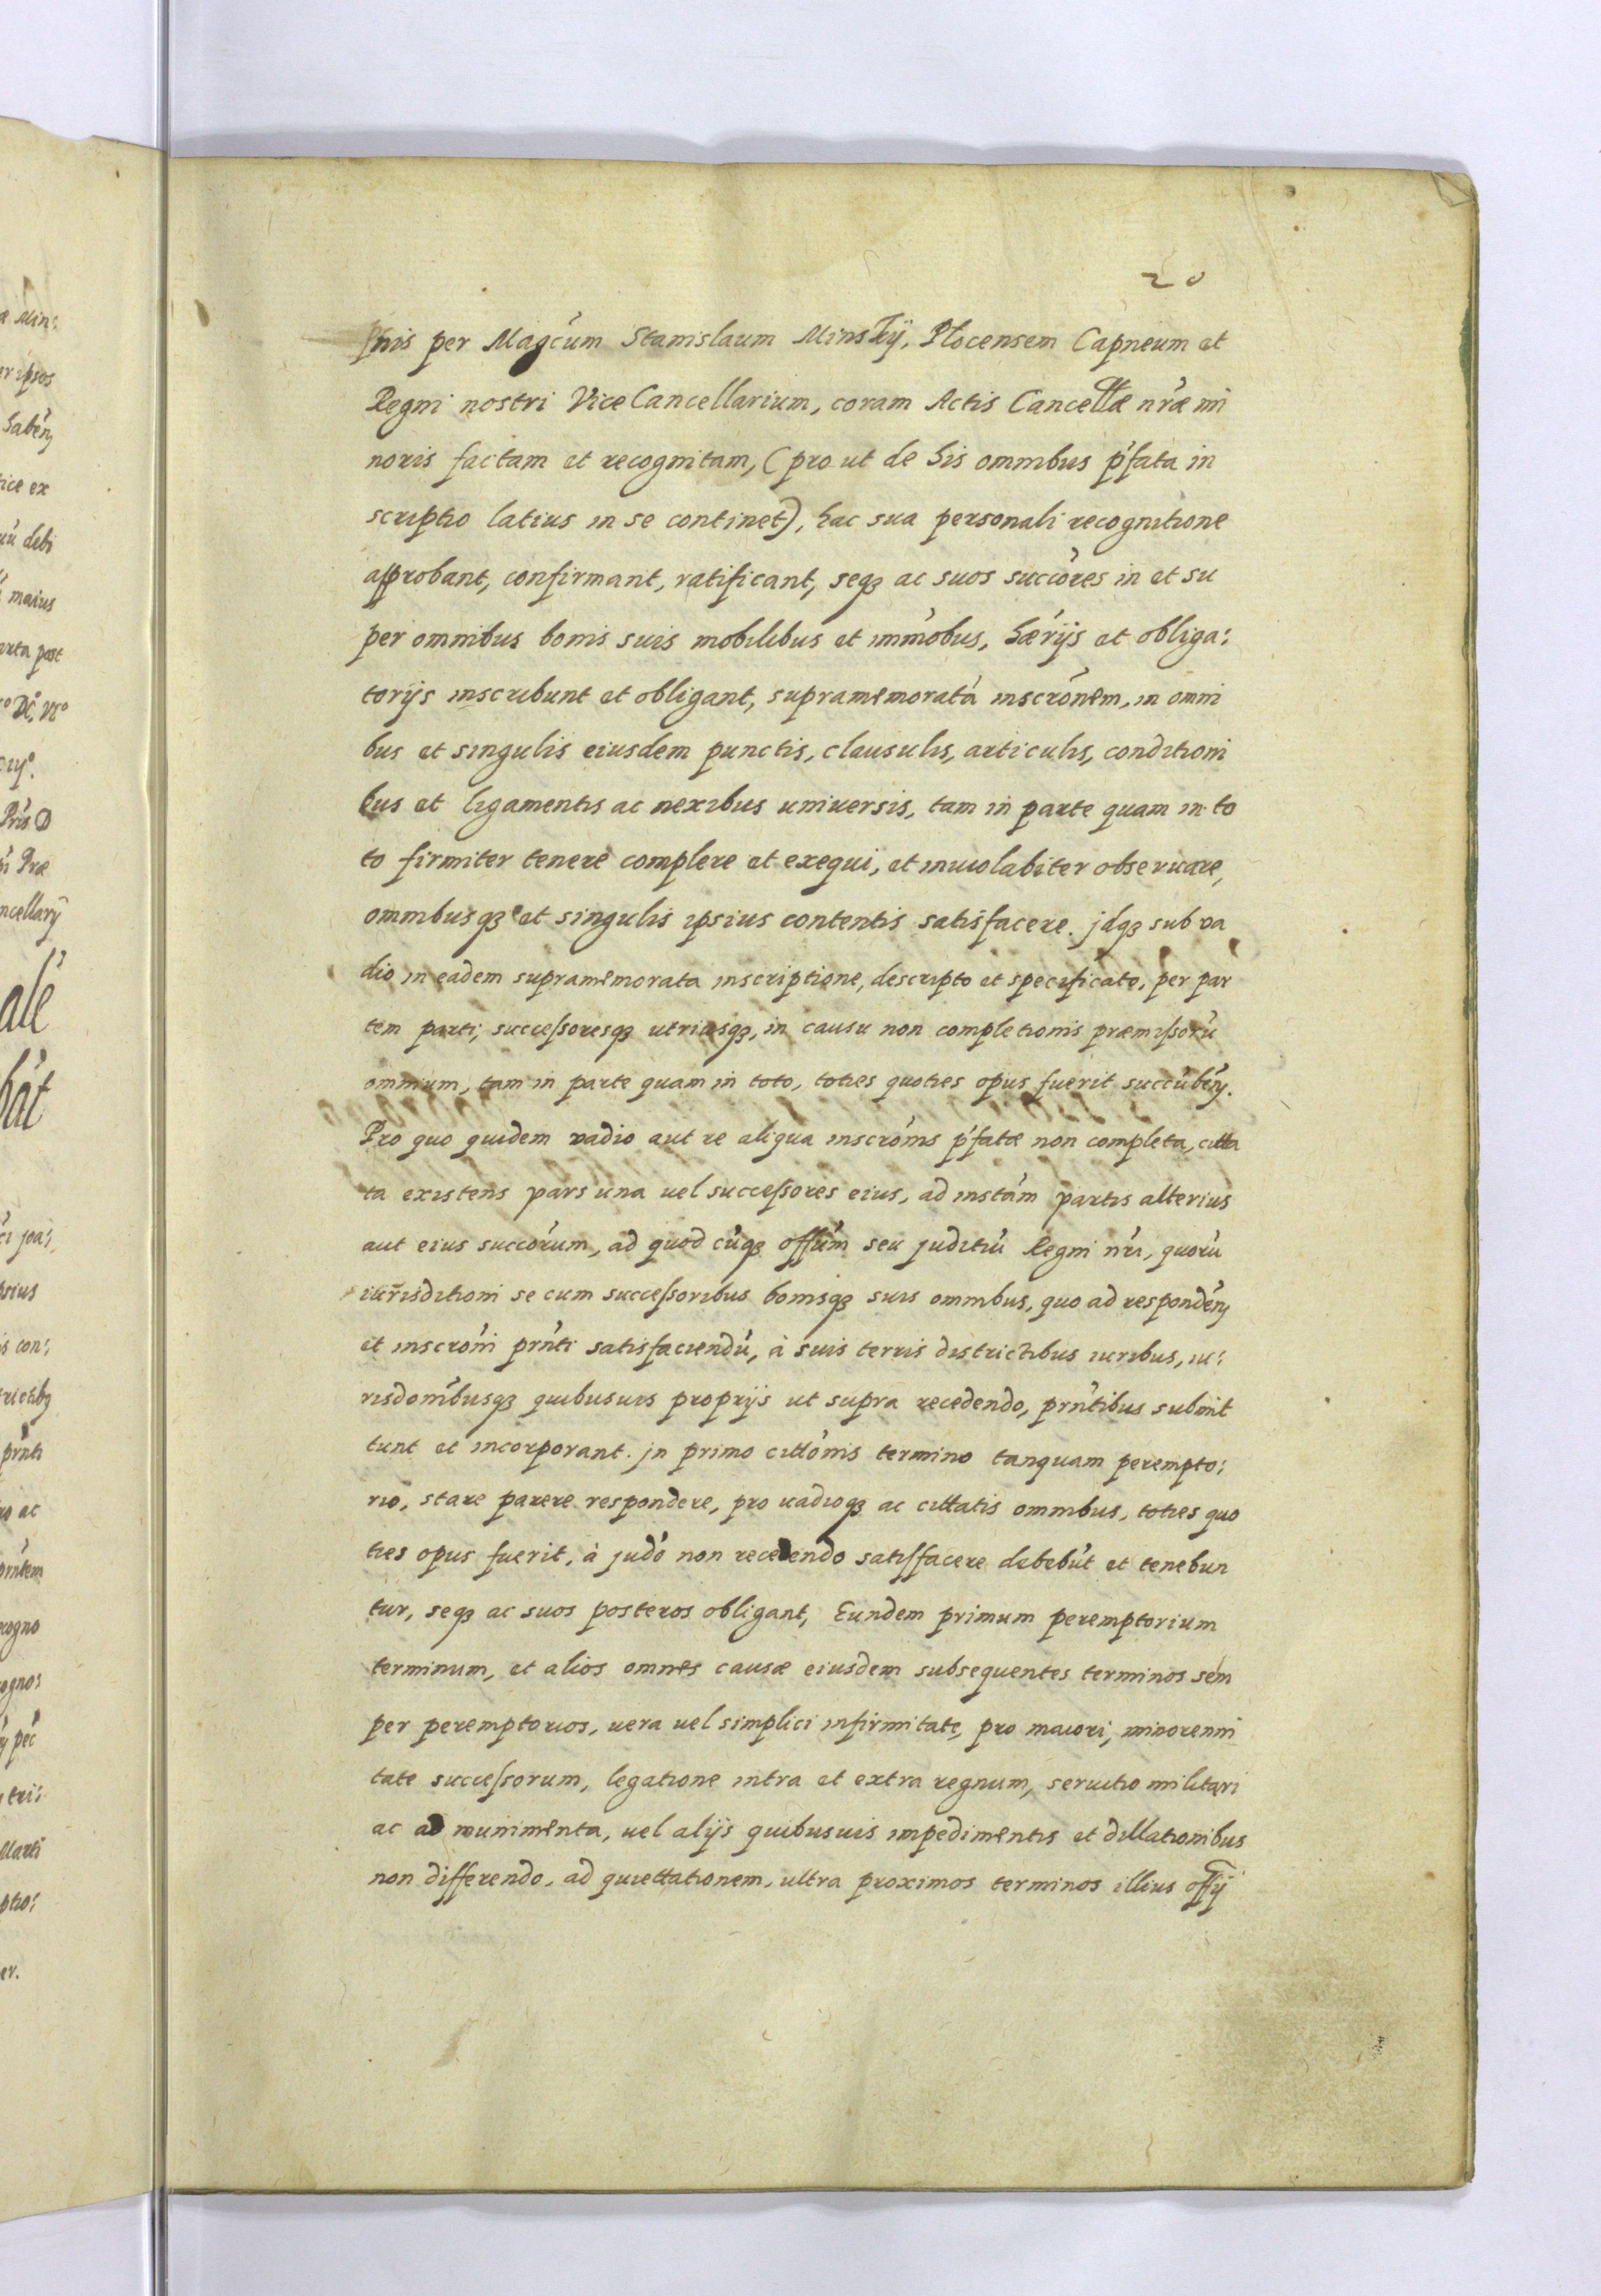 20
ptnis per Magcum Stanislaum Minskij, Plocensem Capneum et
Regni nostri ViceCancellarium, coram Actis Cancellæ nræ mi
noris factam et recognitam, (pro ut de his omnibus pfata in
scriptio latius in se continet), hac sua personali recognitione
approbant, confirmant, ratificant, seqȝ ac suos succores in et su
per omnibus bonis suis mobilibus et immobus, hærijs et obliga:
torijs inscribunt et obligant, supramemoratá inscronem, in omni
bus et singulis eiusdem punctis, clausulis, articulis, conditioni
bus et ligamentis ac nexibus uniuersis, tam in parte quam in to
to firmiter tenere complere et exequi, et inuiolabiter obseruare,
omnibusqȝ et singulis ipsius contentis satisfacere. jdqȝ sub va
dio in eadem supramemorata inscriptione, descripto et specificato, per par
tem parti, successoresqȝ utriusqȝ, in causu non completionis præmissorú
omnium, tam in parte quam in toto, toties quoties opus fuerit succubenȝ.
Pro quo quidem vadio aut re aliqua inscronis pfatæ non completa, citta
ta existens pars una uel successores eius, ad instám partis alterius
aut eius succorum, ad quod cúqȝ offúm seu juditiú Regni nri, quorú
iurisditioni se cum successoribus bonisqȝ suis omnibus, quo ad respondenȝ
et inscroni prnti satisfaciendú, à suis terris districtibus iuribus, iu:
risdonibusqȝ quibusuis proprijs ut supra recedendo, prntibus submit
tunt et incorporant. jn primo cittonis termino tanquam perempto:
rio, stare parere respondere, pro uadioqȝ ac cittatis omnibus, toties quo
ties opus fuerit, à judo non recedendo satisfacere debebút et tenebun
tur, seqȝ ac suos posteros obligant, Eundem primum peremptorium
terminum, et alios omnes causæ eiusdem subsequentes terminos sem
per peremptorios, uera uel simplici infirmitate, pro maiori, minorenni
tate successorum, legatione intra et extra regnum, seruitio militari
ac ad munimenta, uel alijs quibusuis impedimentis et dillationibus
non differendo, ad quiettationem, ultra proximos terminos illius offij